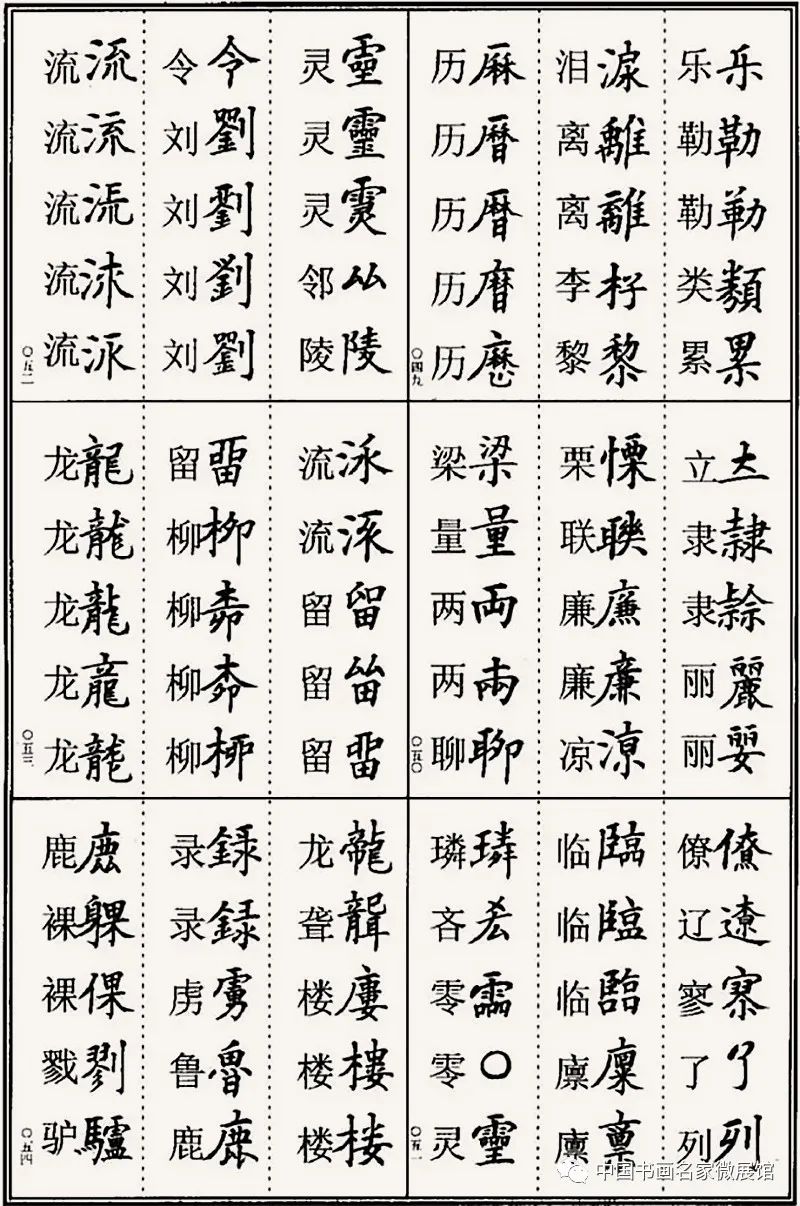 乐乐 勒勒 勒勒 类類 累累
泪淚 离離 离離 李杍 黎黎
历厤 历曆 历曆 历 历
〇四九
立 隶隷 隶 丽麗 丽
栗慄 联聨 廉廉 廉廉 凉凉
梁梁 量量 两両 两 聊聊
〇五〇
僚僚 辽遼 寥 了了 列列
临臨 临臨 临臨 廪廩 廪
璘璘 吝 零 零〇 灵靈
〇五一
灵靈 灵靈 灵 邻厸 陵陵
令令 刘劉 刘 刘劉 刘劉
流流 流流 流 流 流
〇五二
流 流 留留 留 留畱
留畱 柳柳 柳 柳 柳
龙龍 龙龍 龙龍 龙龍 龙龍
〇五三
龙龍 聋聾 楼廔 楼樓 楼楼
录録 录録 虏虜 鲁魯 鹿鹿
鹿鹿 裸躶 裸倮 戮 驴驢
〇五四
中国书画名家微展馆